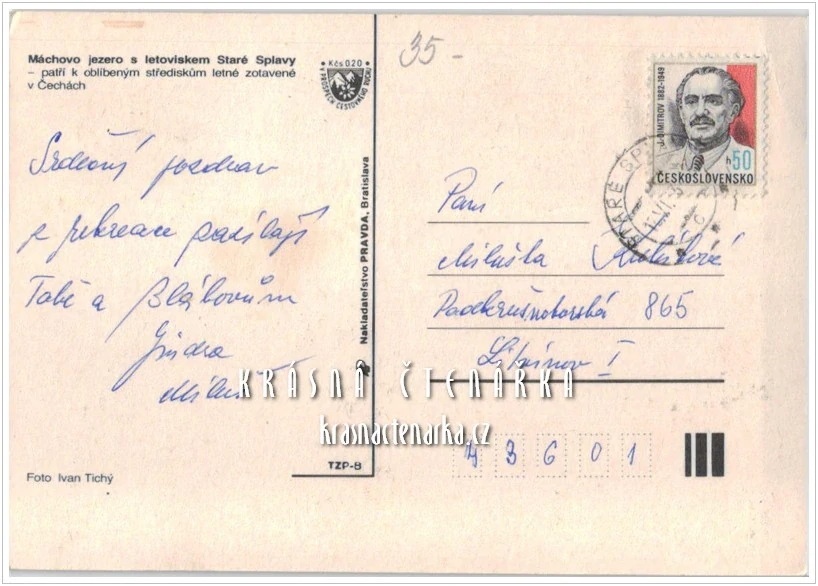 Máchovo jezero s letoviskem Staré Splavy
– patří k oblíbeným střediskům letné zotavené
v Čechách
Kčs 0.20
35 -
J. DIMITROV 1882-1949
50 h
ČESKOSLOVENSKO
STARÉ SP
Srdečný pozdrav
z rekreace posílají
Tobě a Bláhovům
Jindra
Miluš
Nakladateľstvo PRAVDA, Bratislava
Paní
Miluška
Podkrušnohorská 865
Litvínov I
KRÁSNÁ ČTENÁRKA
krasnactenarka.cz
43601
TZP-8
Foto Ivan Tichý